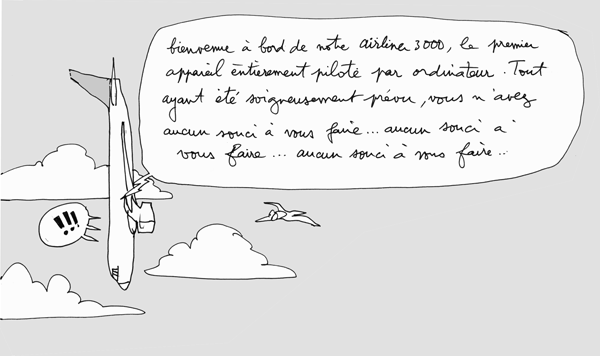 bienvenue à bord de notre airliner 3000, le premier
appareil entièrement piloté par ordinateur. Tout
ayant été soigneusement prévu, vous n'avez
aucun souci à vous faire... aucun souci a'
vous faire... aucun souci à vous faire...
!!!